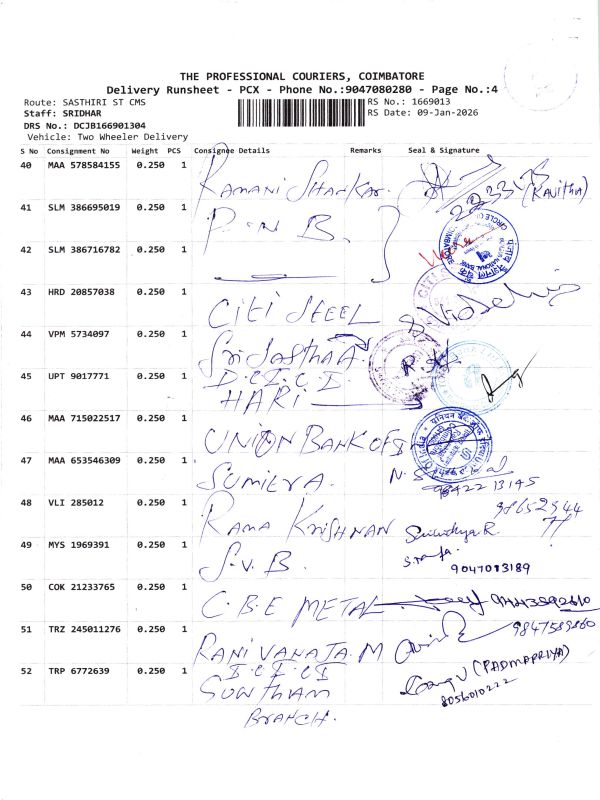 THE PROFESSIONAL COURIERS, COIMBATORE
Delivery Runsheet - PCX - Phone No.:9047080280 - Page No.:4
Route: SASTHIRI ST CMS
RS No.: 1669013
Staff: SRIDHAR
RS Date: 09-Jan-2026
DRS No.: DCJB166901304
Vehicle: Two Wheeler Delivery
S No Consignment No Weight PCS Consignee Details Remarks Seal & Signature
40 MAA 578584155 0.250 1 Ramani Shankar. (Kavitha)
41 SLM 386695019 0.250 1 P.N B.
42 SLM 386716782 0.250 1
43 HRD 20857038 0.250 1 Citi Steel
44 VPM 5734097 0.250 1 Sri Sastha A.
45 UPT 9017771 0.250 1 I.C.I.C.I
HARI
46 MAA 715022517 0.250 1 UNION BANK OF I
47 MAA 653546309 0.250 1 Sumitra.
48 VLI 285012 0.250 1 Rama Krishnan
49 MYS 1969391 0.250 1 S.V.B. 9047013189
50 COK 21233765 0.250 1 C.B.E METAL
51 TRZ 245011276 0.250 1 RANI VANAJA.M 9847589860
52 TRP 6772639 0.250 1 I.C.I.C.I (PADMAPRIYA)
Gowtham 8056010222
Branch.